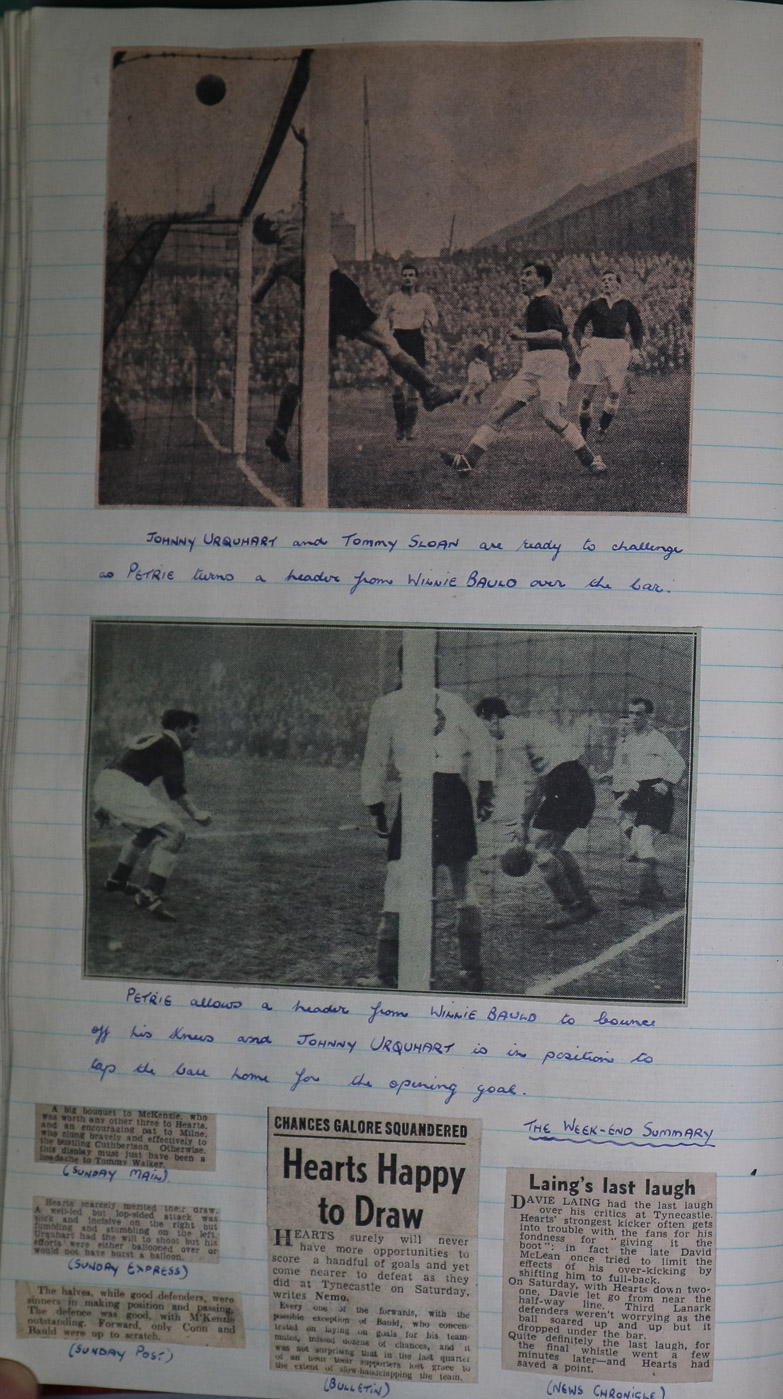 JOHNNY URQUHART and TOMMY SLOAN are ready to challenge
as PETRIE turns a header from WILLIE BAULD over the bar.
PETRIE allows a header from WILLIE BAULD to bounce
off his knees and JOHNNY URQUHART is in position to
tap the ball home for the opening goal.
A big bouquet to McKenzie, who
was worth any other three to Hearts,
and an encouraging pat to Milne,
who clung bravely and effectively to
the bustling Cuthbertson. Otherwise,
this display must just have been a
headache to Tommy Walker.
(SUNDAY MAIL)
Hearts scarcely merited their draw.
A well-led but lop-sided attack was
slick and incisive on the right but
fumbling and stumbling on the left.
Urquhart had the will to shoot but his
efforts were either ballooned over or
would not have burst a balloon.
(SUNDAY EXPRESS)
The halves, while good defenders, were
sinners in making position and passing.
The defence was good, with McKenzie
outstanding. Forward, only Conn and
Bauld were up to scratch.
(SUNDAY POST)
CHANCES GALORE SQUANDERED
Hearts Happy
to Draw
HEARTS surely will never
have more opportunities to
score a handful of goals and yet
come nearer to defeat as they
did at Tynecastle on Saturday,
writes Nemo.
Every one of the forwards, with the
possible exception of Bauld, who concen-
trated on laying on goals for his team-
mates, missed dozens of chances, and it
was not surprising that in the last quarter
of an hour their supporters lost grace to
the extent of slow-handclapping the team.
(BULLETIN)
THE WEEK-END SUMMARY
Laing's last laugh
DAVIE LAING had the last laugh
over his critics at Tynecastle.
Hearts' strongest kicker often gets
into trouble with the fans for his
fondness for "giving it the
boot"; in fact the late David
McLean once tried to limit the
effects of his over-kicking by
shifting him to full-back.
On Saturday, with Hearts down two-
one, Davie let go from near the
half-way line. Third Lanark
defenders weren't worrying as the
ball soared up and up but it
dropped under the bar.
Quite definitely the last laugh, for
the final whistle went a few
minutes later—and Hearts had
saved a point.
(NEWS CHRONICLE)